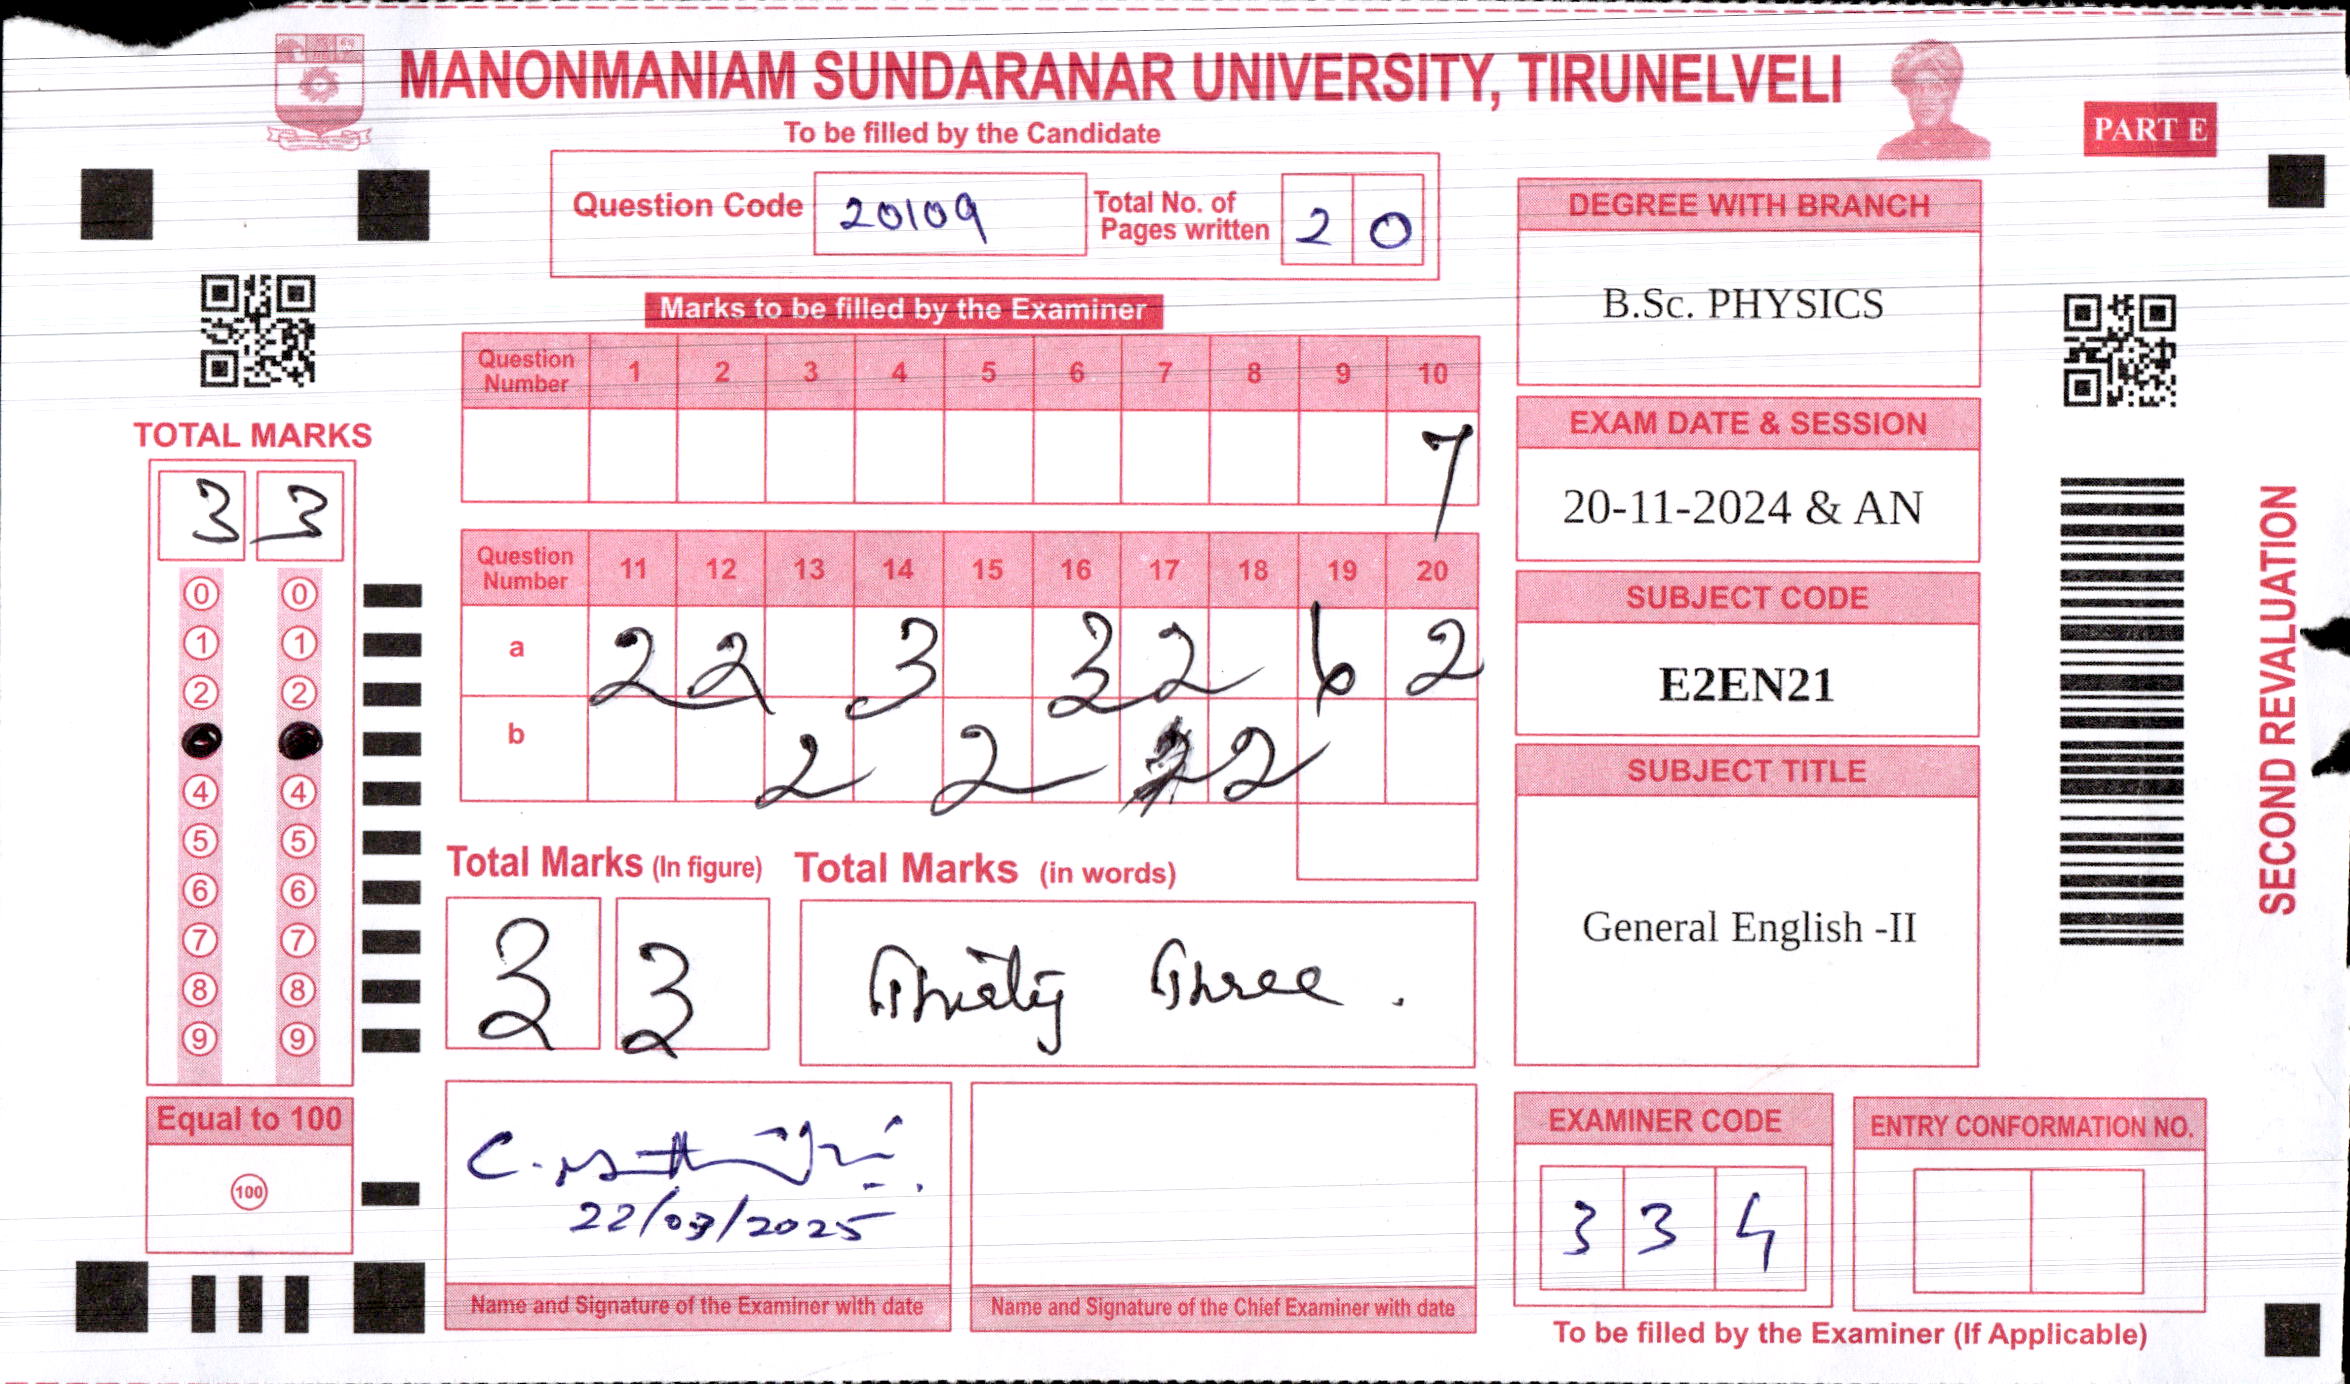 MANONMANIAM SUNDARANAR UNIVERSITY, TIRUNELVELI
PART E
To be filled by the Candidate
Question Code 20109 Total No. of Pages written 2 0
Marks to be filled by the Examiner
Question Number 1 2 3 4 5 6 7 8 9 10
7
Question Number 11 12 13 14 15 16 17 18 19 20
a 2 2 3 3 2 6 2
b 2 2 2 2
Total Marks (In figure) Total Marks (in words)
3 3 Thirty Three.
22/03/2025
Name and Signature of the Examiner with date
Name and Signature of the Chief Examiner with date
TOTAL MARKS
3 3
0 0
1 1
2 2
4 4
5 5
6 6
7 7
8 8
9 9
Equal to 100
100
DEGREE WITH BRANCH
B.Sc. PHYSICS
EXAM DATE & SESSION
20-11-2024 & AN
SUBJECT CODE
E2EN21
SUBJECT TITLE
General English -II
EXAMINER CODE
3 3 4
ENTRY CONFORMATION NO.
To be filled by the Examiner (If Applicable)
SECOND REVALUATION